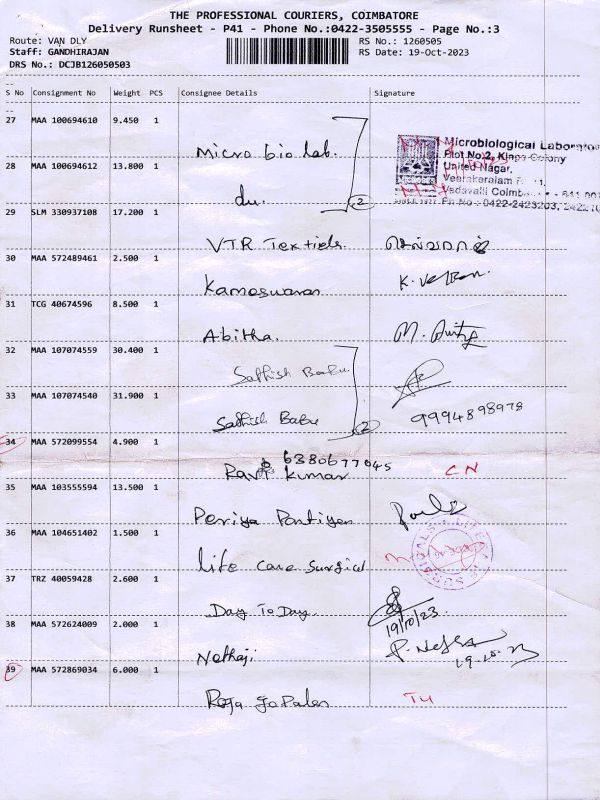 THE PROFESSIONAL COURIERS, COIMBATORE
Delivery Runsheet - P41 - Phone No.:0422-3505555 - Page No.:3
Route: VAN DLY
RS No.: 1260505
Staff: GANDHIRAJAN
RS Date: 19-Oct-2023
DRS No.: DCJB126050503
S No Consignment No Weight PCS Consignee Details Signature
27 MAA 100694610 9.450 1
Micro bio Lab.
Microbiological Laborator
Plot No:2, Kings Colony
United Nagar,
Veerakeralam
Vadavalli Coimb - 641 00
Ph No : 0422-2423203, 24221
28 MAA 100694612 13.800 1
du. 2
29 SLM 330937108 17.200 1
VTR Textiels.
30 MAA 572489461 2.500 1
Kameswaran
31 TCG 40674596 8.500 1
Abitha.
32 MAA 107074559 30.400 1
Sathish Babu
33 MAA 107074540 31.900 1
Sathish Babu 2 9994898978
34 MAA 572099554 4.900 1
6380677045
Ravi Kumar CN
35 MAA 103555594 13.500 1
Periya Pantiyan
36 MAA 104651402 1.500 1
Life care surgical
37 TRZ 40059428 2.600 1
Day To Day.
19/10/23
38 MAA 572624009 2.000 1
Nethaji
19.10.23
39 MAA 572869034 6.000 1
Raja gopalan